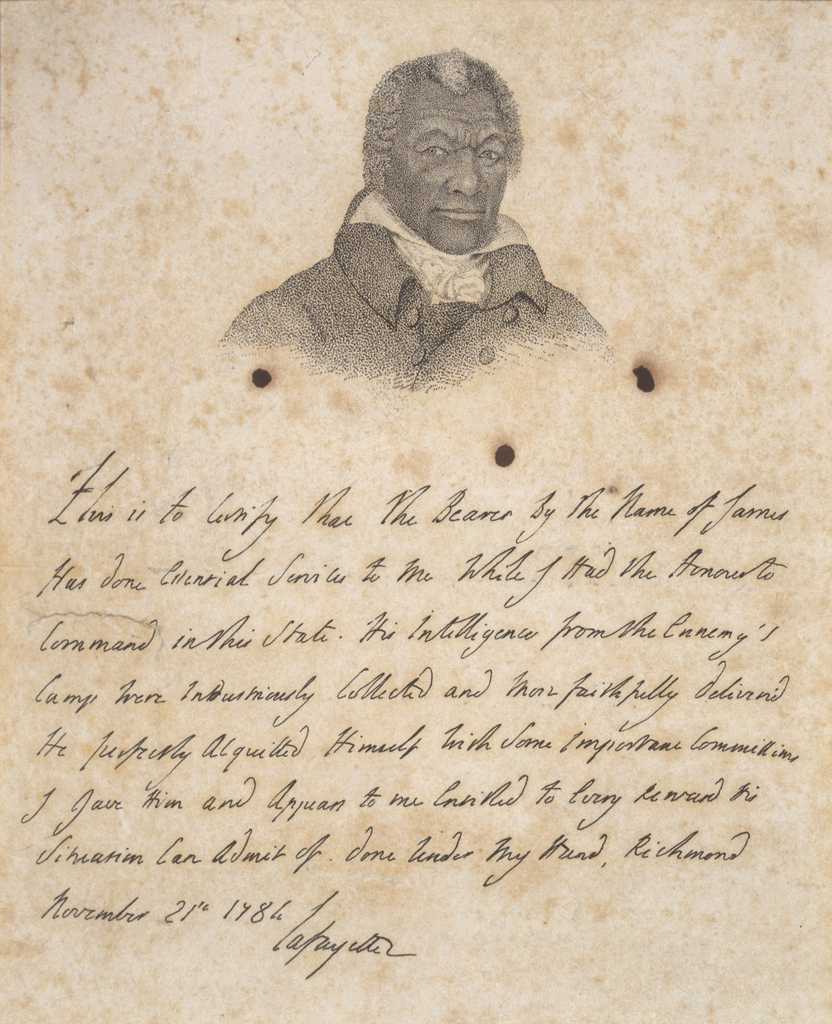 This is to Certify that the Bearer By the Name of James
Has done Essential Services to me While I Had the Honour to
Command in this State. His Intelligences from the Ennemy's
Camp were Industriously Collected and More faithfully deliver'd
He perfectly Acquitted Himself with Some Important Commissions
I Gave Him and Appears to me Entitled to Every Reward His
Situation Can Admit of. Done Under My Hand, Richmond
November 21st 1784
Lafayette